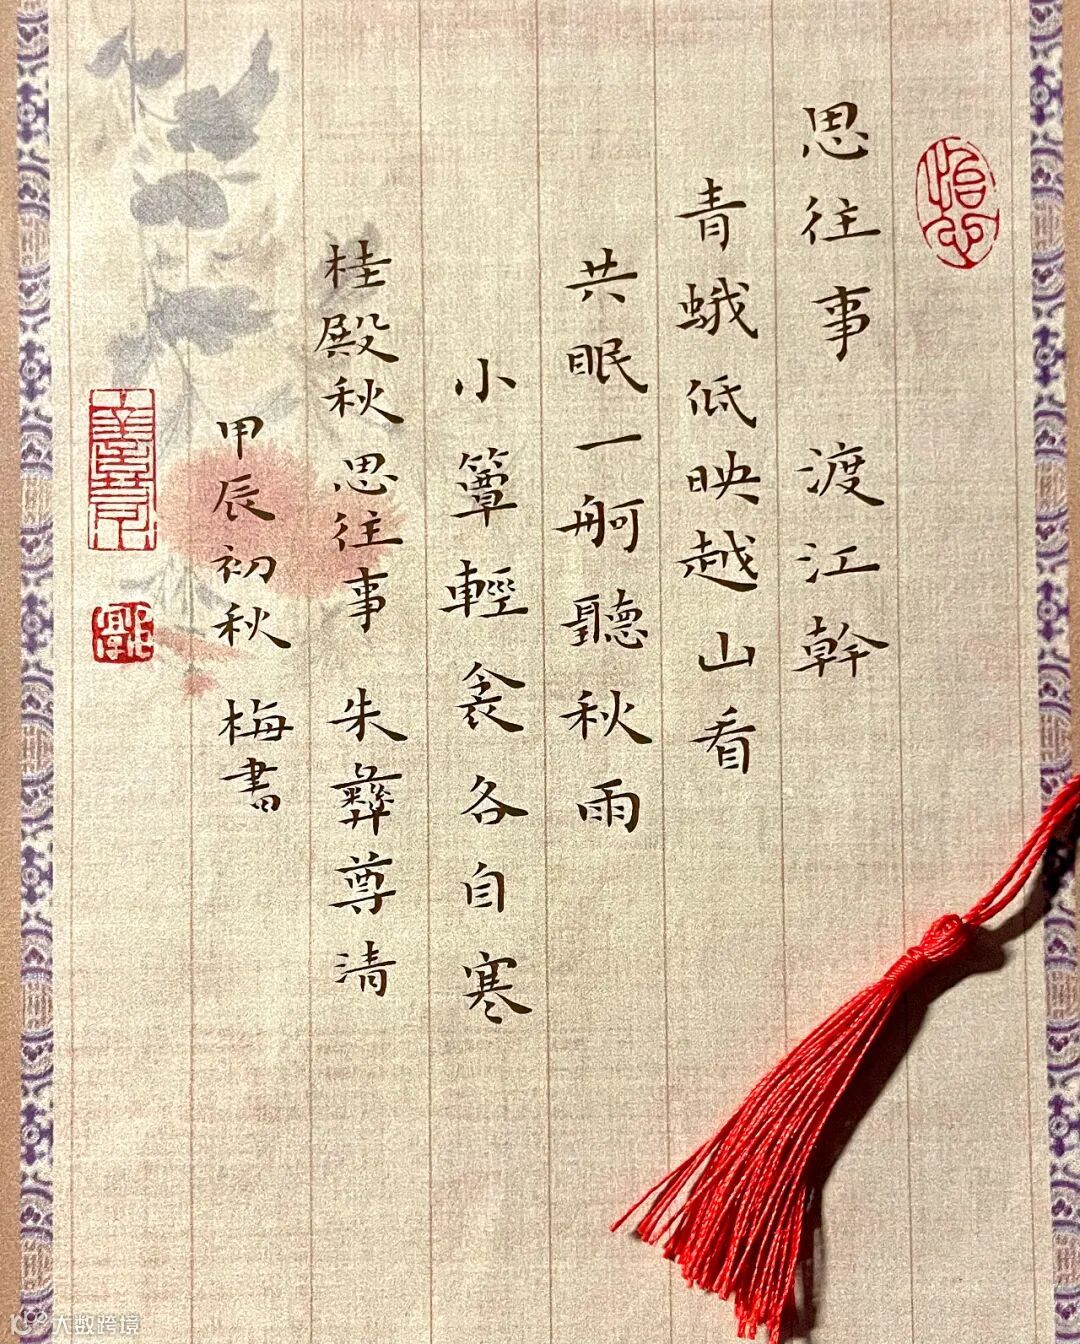 怡心
思往事 渡江幹
青蛾低映越山看
共眠一舸聽秋雨
小簟輕衾各自寒
桂殿秋思往事 朱彝尊清
甲辰初秋 梅書
大数跨境